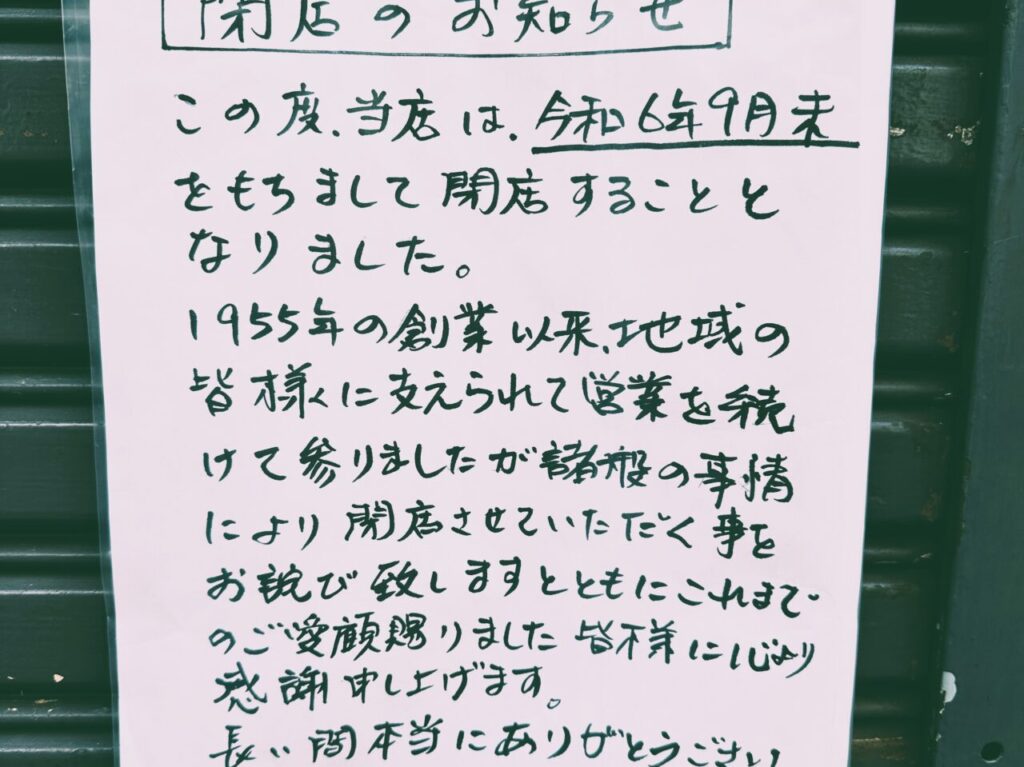 閉店のお知らせ
この度、当店は、令和6年9月末
をもちまして閉店することと
なりました。
1955年の創業以来、地域の
皆様に支えられて営業を続
けて参りましたが諸般の事情
により閉店させていただく事を
お詫び致しますとともにこれまで
のご愛顧賜りました皆様に心より
感謝申し上げます。
長い間本当にありがとうござい